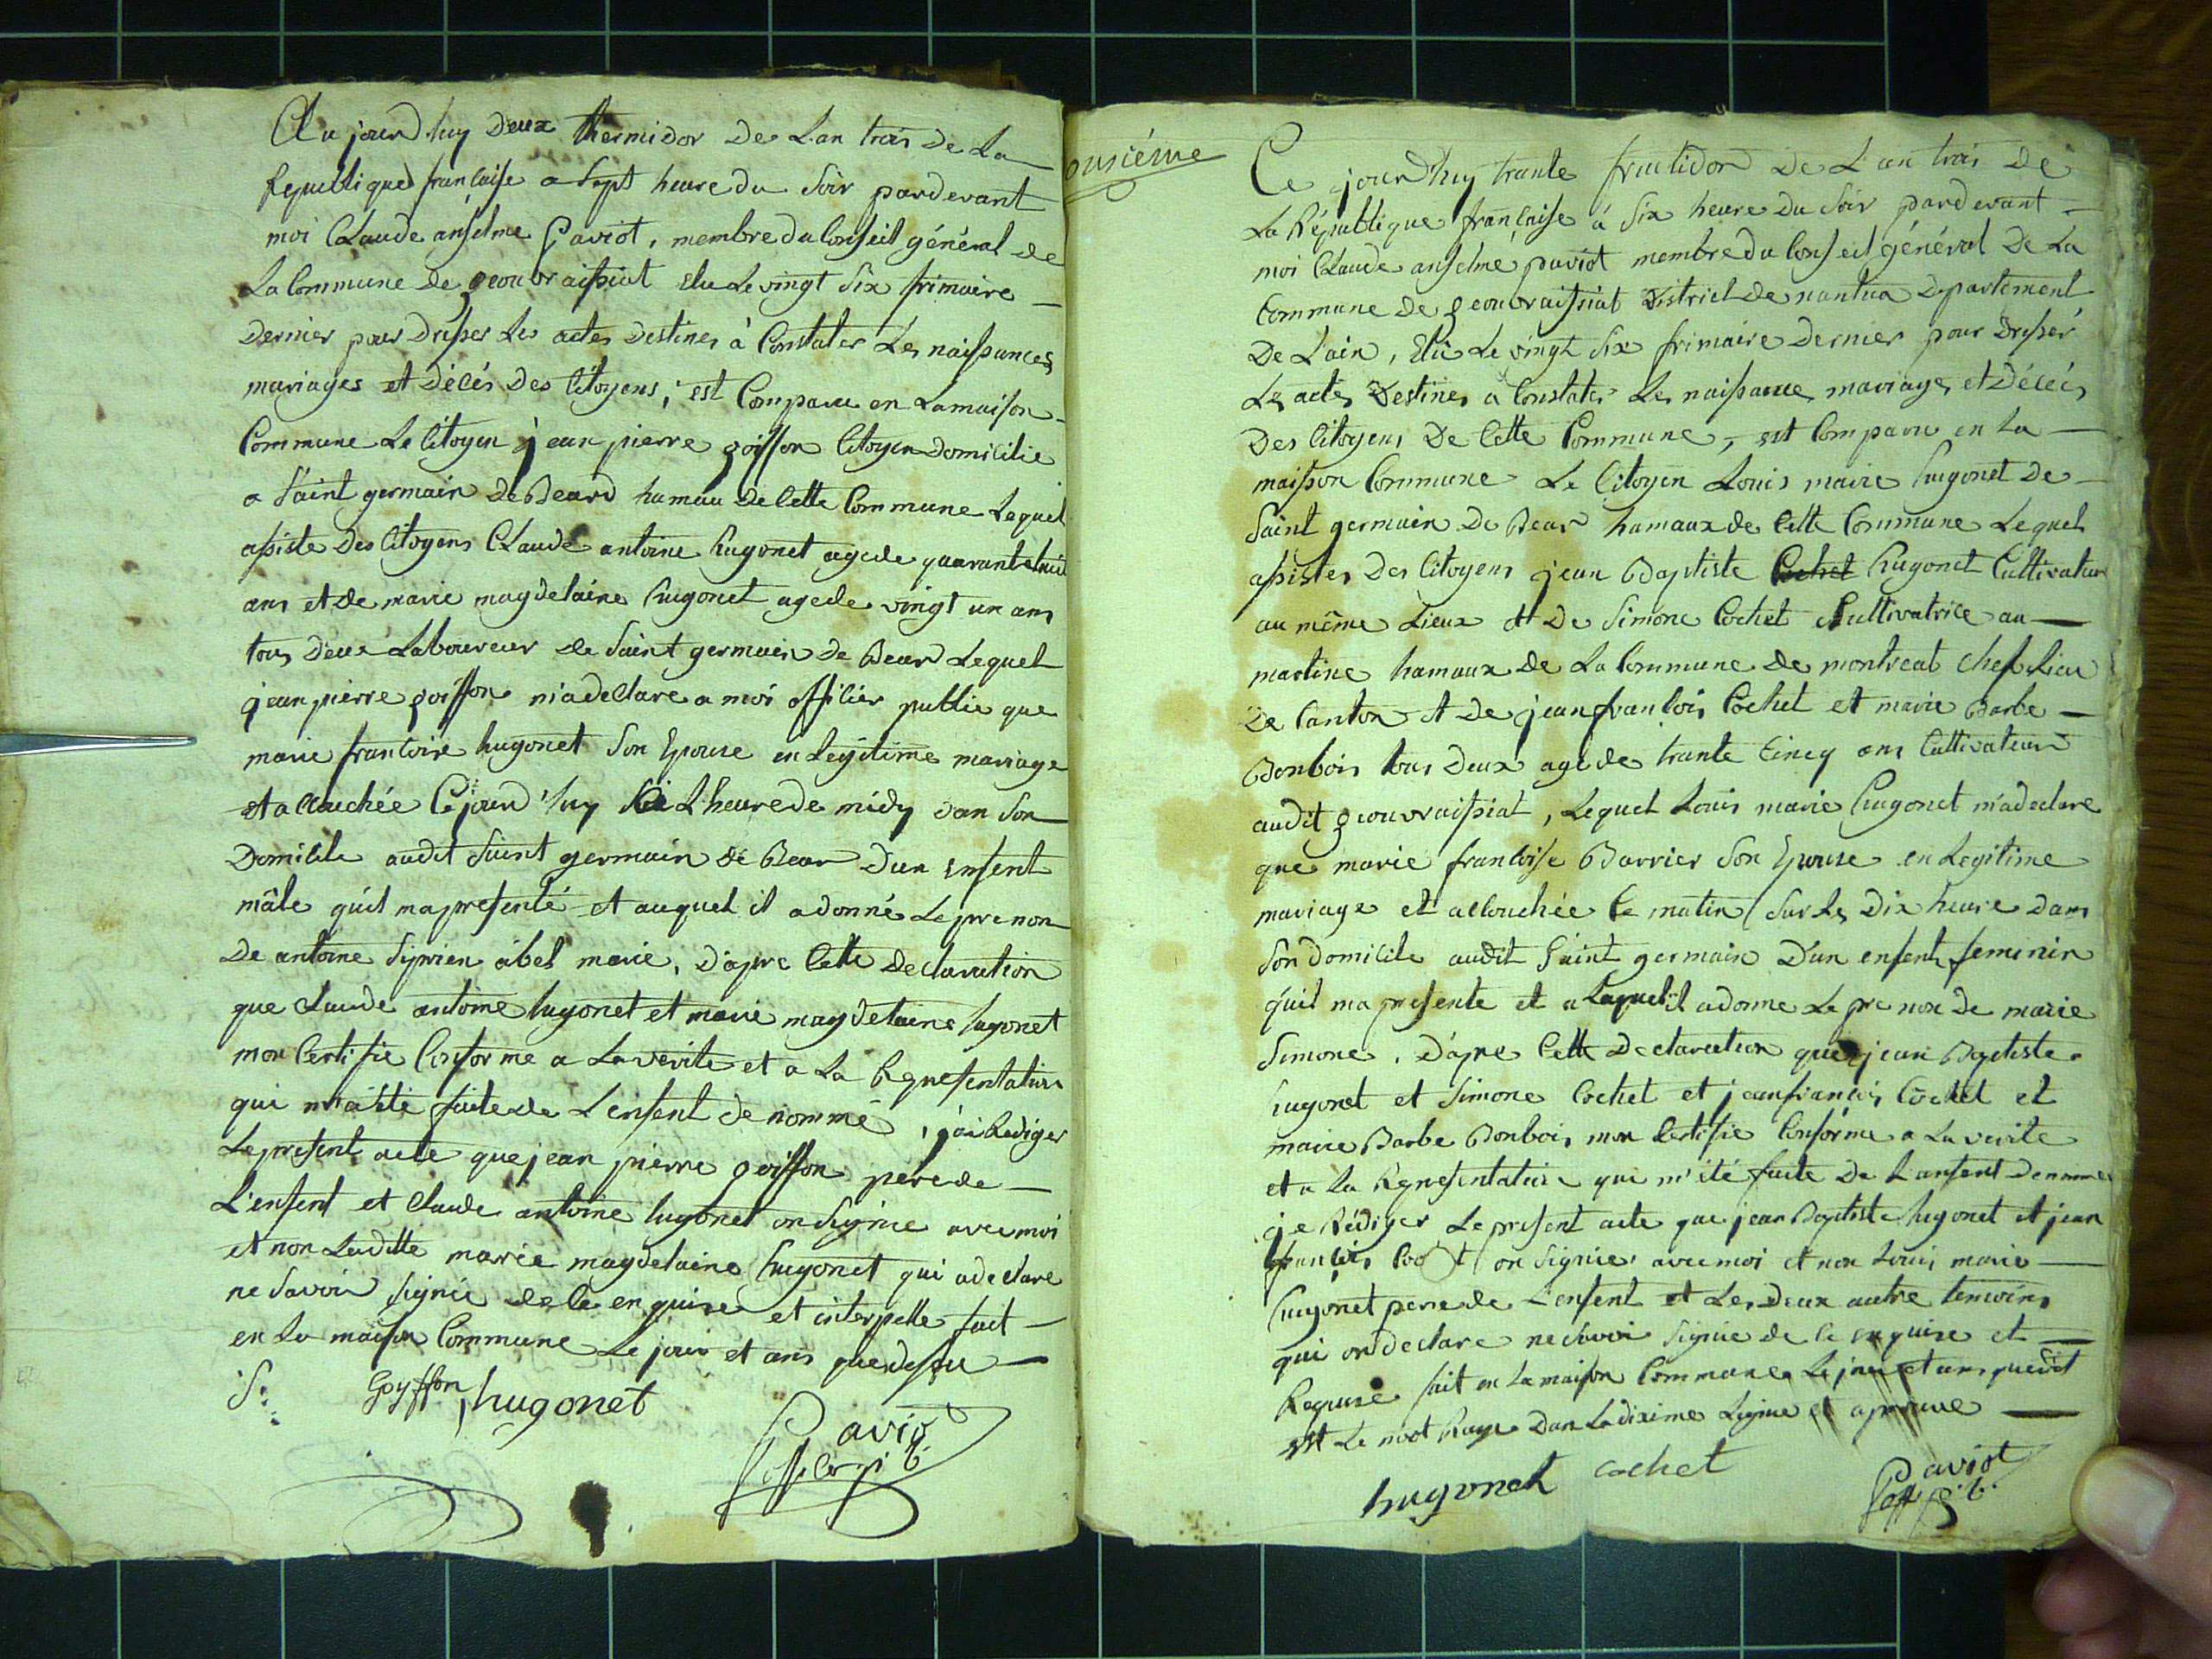 Au jourd huy Deux thermidor De L'an trois De La
Republique française a Sept heure du Soir pardevant
moi Claude anselme Paviot, membre du Conseil général de
La Commune De geouvraissiat Elu Le vingt Six frimaire
Dernier pour dresser Les actes Destines à Constater Les naissances
mariages et Décés Des Citoyens, est Comparu en La maison
Commune Le Citoyen jean pierre goiffon Citoyen Domicilie
a Saint germain de Beard hamau de Cette Commune Lequel
assiste Des Citoyens Claude antoine hugonet age de quarante huit
ans et de marie magdelaine hugonet agede vingt un ans
tous deux Laboureur de Saint germain de Beard Lequel
jean pierre goiffon m'a declare a moi officier public que
marie francoise hugonet Son Epouse en Legitime mariage
et accouchée Cejourd'huy L'heure de midy dan Son
Domicile audit Saint germain de Bear D'un Enfent
mâle qu'il ma presenté et auquel il a donné Le prenon
De antoine Siprien abel marie, D'apre Cette Declaration
que claude antoine hugonet et marie magdelaine hugonet
mon Certifie Conforme a La verite et a La Representation
qui m'a été faite de L'enfent denommé, j'ai Rediger
Le present acte que jean pierre goiffon pere de
L'enfent et claude antoine hugonet on Signie avec moi
et non Laditte marie magdelaine hugonet qui a declare
ne Savoir Signie de Ce enquise et interpelle fait
en La maison Commune Le jour et ans que dessu
S.
Goyffon hugonet
Paviot
off. pb.
onsiéme
Ce jourd'huy trante fructidor De L'an trois De
La République française à Six heure Du Soir pardevant
moi Claude anselme paviot membre du Conseil général De La
Commune De geouvraissiat District De nantua Departement
De L'ain, Elu Le vingt Six frimaire Dernier pour Dresser
Les actes Destines a Constater Les naissance mariages et Décés
Des Citoyens De Cette Commune, est Comparu en La
maison Commune Le Citoyen Louis marie hugonet De
Saint germain De Bear hamaux de Cette Commune Lequel
assistes Des Citoyens jean Baptiste Cochet hugonet Cultivateur
au même Lieux et De Simone Cochet Cultivatrice au
martine hamaux de La Commune De montreal Chef Lieu
De Canton et De jean françois Cochet et marie Barbe
Bonbois tous Deux age de trante Cincq ans Cultivateur
audit geouvraissiat, Lequel Louis marie hugonet m'a declare
que marie françoise Barrier Son Epouse en Legitime
mariage et accouchée Ce matin Sur Les Dix heure dans
Son Domicile audit Saint germain D'un enfent femenin
qu'il ma presente et a Laquel il a donne Le prenon De marie
Simone. D'apre Cette Declaration que jean Baptiste
hugonet et Simone Cochet et jean françois Cochet et
marie Barbe Bonbois mon Certifie Conforme a La verite
et a La Representation qui m'été faite De L'anfent Denommé
je Rédiger Le present acte que jean Baptiste hugonet et jean
françois Cochet on Signier avec moi et non Louis marie
hugonet pere de L'enfent et Les Deux autre temoins
qui on declare ne Savoir Signie de Ce enquise et
Requise fait en La maison Commune Le jour et ans que dit
est Le mot Raye Dan La dixieme Ligne et aprouve
hugonet cochet
Paviot
off. p. b.